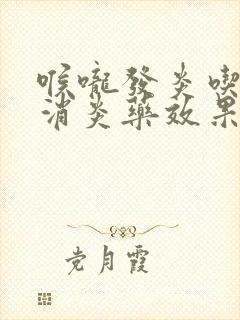 喉嚨發炎喫
消炎藥效果
党月霞